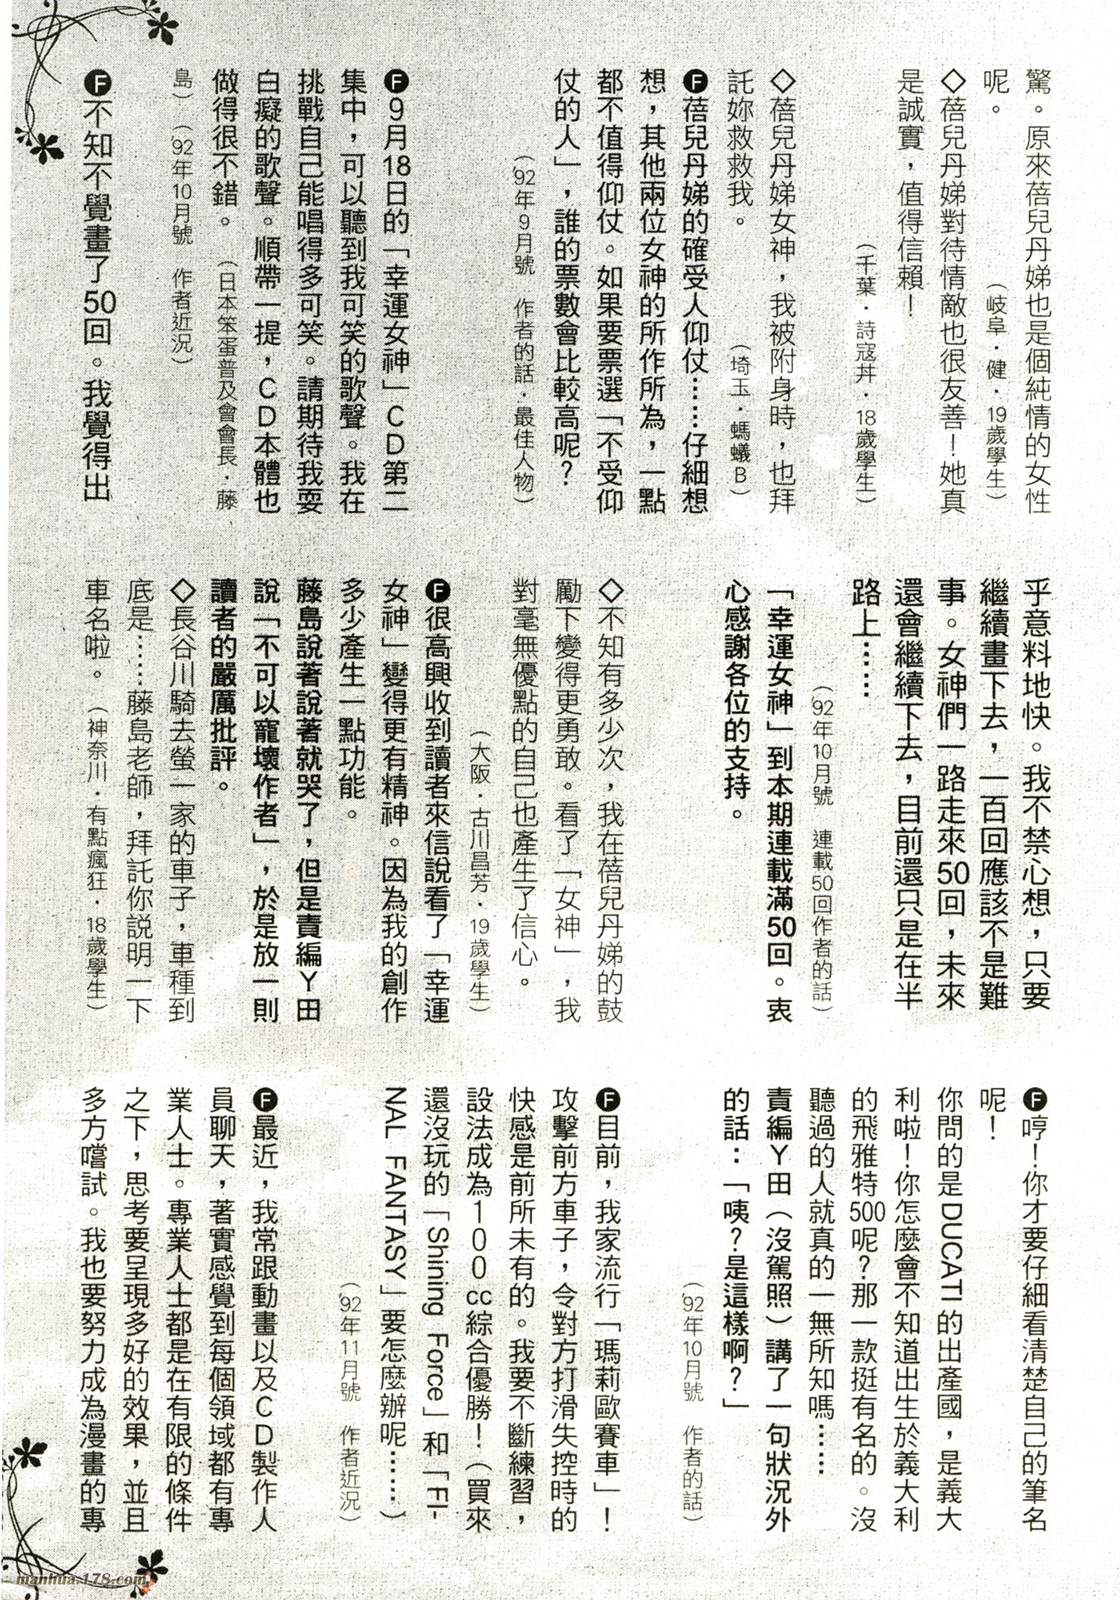 驚。原來蓓兒丹娣也是個純情的女性
呢。
（岐阜・健・19歲學生）
◇蓓兒丹娣對待情敵也很友善！她真
是誠實，值得信賴！
（千葉・詩寇丼・18歲學生）
◇蓓兒丹娣女神，我被附身時，也拜
託妳救救我。
（埼玉・螞蟻B）
Ⓕ蓓兒丹娣的確受人仰仗……仔細想
想，其他兩位女神的所作所為，一點
都不值得仰仗。如果要票選「不受仰
仗的人」，誰的票數會比較高呢？
（'92年9月號　作者的話・最佳人物）
Ⓕ9月18日的「幸運女神」CD第二
集中，可以聽到我可笑的歌聲。我在
挑戰自己能唱得多可笑。請期待我耍
白癡的歌聲。順帶一提，CD本體也
做得很不錯。
（日本笨蛋普及會會長・藤
島）（'92年10月號　作者近況）
Ⓕ不知不覺畫了50回。我覺得出
乎意料地快。我不禁心想，只要
繼續畫下去，一百回應該不是難
事。女神們一路走來50回，未來
還會繼續下去，目前還只是在半
路上……
（'92年10月號　連載50回作者的話）
「幸運女神」到本期連載滿50回。衷
心感謝各位的支持。
◇不知有多少次，我在蓓兒丹娣的鼓
勵下變得更勇敢。看了「女神」，我
對毫無優點的自己也產生了信心。
（大阪・古川昌芳・19歲學生）
Ⓕ很高興收到讀者來信說看了「幸運
女神」變得更有精神。因為我的創作
多少產生一點功能。
藤島說著說著就哭了，但是責編Y田
說「不可以寵壞作者」，於是放一則
讀者的嚴厲批評。
◇長谷川騎去螢一家的車子，車種到
底是……藤島老師，拜託你說明一下
車名啦。（神奈川・有點瘋狂・18歲學生）
Ⓕ哼！你才要仔細看清楚自己的筆名
呢！
你問的是DUCATI的出產國，是義大
利啦！你怎麼會不知道出生於義大利
的飛雅特500呢？那一款挺有名的。沒
聽過的人就真的一無所知嗎……
責編Y田（沒駕照）講了一句狀況外
的話：「咦？是這樣啊？」
（'92年10月號　作者的話）
Ⓕ目前，我家流行「瑪莉歐賽車」！
攻擊前方車子，令對方打滑失控時的
快感是前所未有的。我要不斷練習，
設法成為100cc綜合優勝！（買來
還沒玩的「Shining Force」和「FI-
NAL FANTASY」要怎麼辦呢……）
（'92年11月號　作者近況）
Ⓕ最近，我常跟動畫以及CD製作人
員聊天，著實感覺到每個領域都有專
業人士。專業人士都是在有限的條件
之下，思考要呈現多好的效果，並且
多方嚐試。我也要努力成為漫畫的專
manhua.178.com